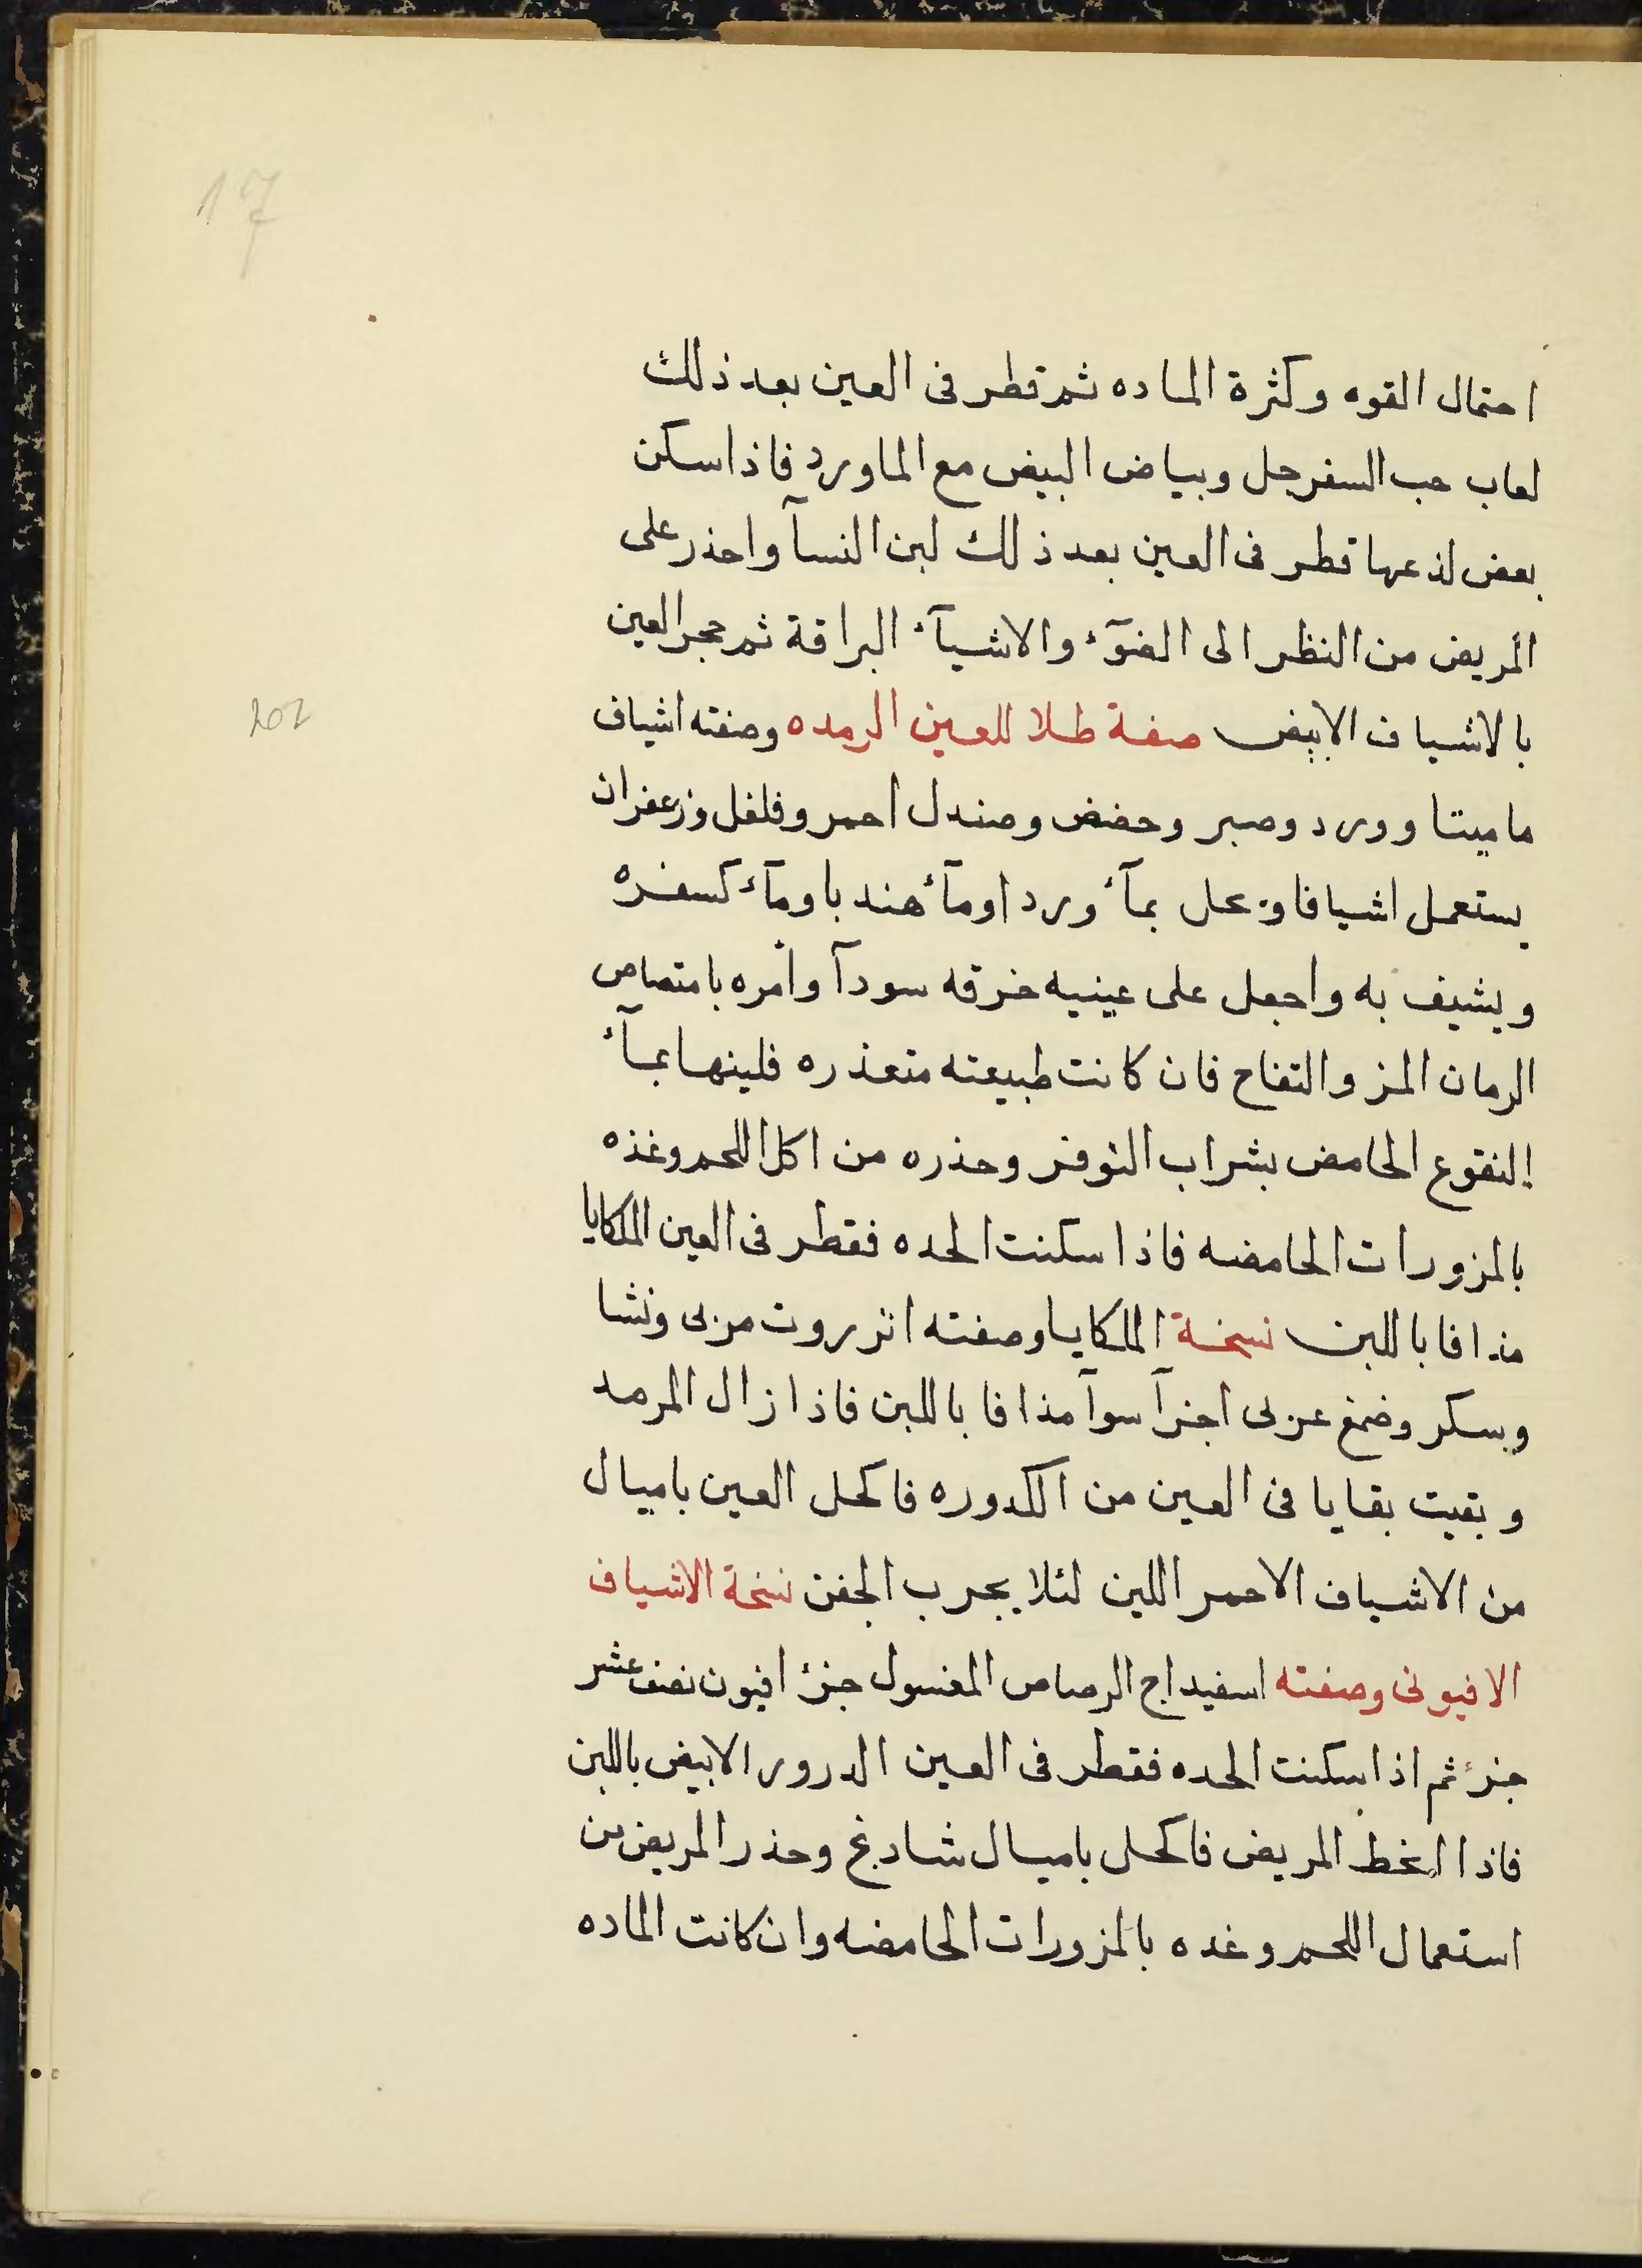 17
احتمال القوه وكثرة الماده ثم قطر فى العين بعد ذلك
لعاب حب السفرجل وبياض البيض مع الماورد فاذا سكن
بعض لذعها قطر فى العين بعد ذلك لبن النسآ واحذر على
المريض من النظر الى الضوٓء والاشيآء البراقة ثم حجر العين
بالاشياف الابيض صفة طلا للعين الرمده وصفته اشياف
202
ماميتا وورد وصبر وحضض وصندل احمر وفلفل وزعفران
يستعمل اشيافا ويحل بمآء ورد اومآء هندبا ومآء كسفره
ويشيف به واجعل على عينيه خرقه سودآ وأمره بامتصاص
الرمان المز والتفاح فان كانت طبيعته متعذره فلينها بمآء
النقوع الحامض بشراب النوفر وحذره من اكل اللحم وغذه
بالمزورات الحامضه فاذا سكنت الحده فقطر فى العين الملكايا
مذافا باللبن نسخة الملكايا وصفته انزروت مربى ونشا
وسكر وضمغ عربى اجزآ سوآ مذافا باللبن فاذا زال المرمد
وبقيت بقايا فى العين من الكدوره فاكحل العين باميال
من الاشياف الاحمر اللين لئلا يجرب الجفن نسخة الاشياف
الافيونى وصفته اسفيداج الرصاص المغسول جزء افيون نصف عشر
جزء ثم اذا سكنت الحده فقطر فى العين الدرور الابيض باللبن
فاذا انخط المريض فاكحل باميال شادنج وحذر المريض من
استعمال اللحم وغده بالمزورات الحامضه وان كانت الماده